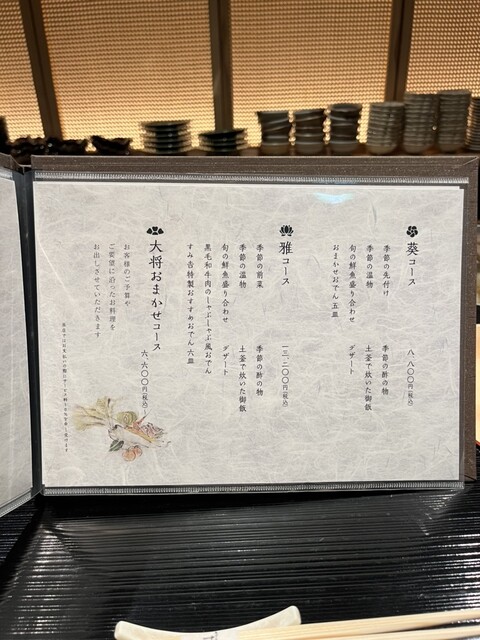 葵コース 八、八〇〇円(税込)
季節の先付け 季節の酢の物
季節の温物 土釜で炊いた御飯
旬の鮮魚盛り合わせ デザート
おまかせおでん五皿
雅コース 一三、二〇〇円(税込)
季節の前菜 季節の酢の物
季節の温物 土釜で炊いた御飯
旬の鮮魚盛り合わせ デザート
黒毛和牛肉のしゃぶしゃぶ風おでん
すみ吉特製おすすめおでん 六皿
大将おまかせコース 六、六〇〇円(税込)〜
お客様のご予算や
ご要望に沿ったお料理を
お出しさせていただきます